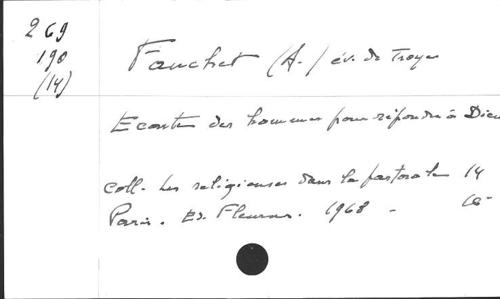 269
190
(14)
Fauchet (A.) év. de Troyes
Ecoute des hommes pour répondre à Dieu
Coll. Les religieuses dans la pastorale 14
Paris. Ed. Fleurus. 1968 -